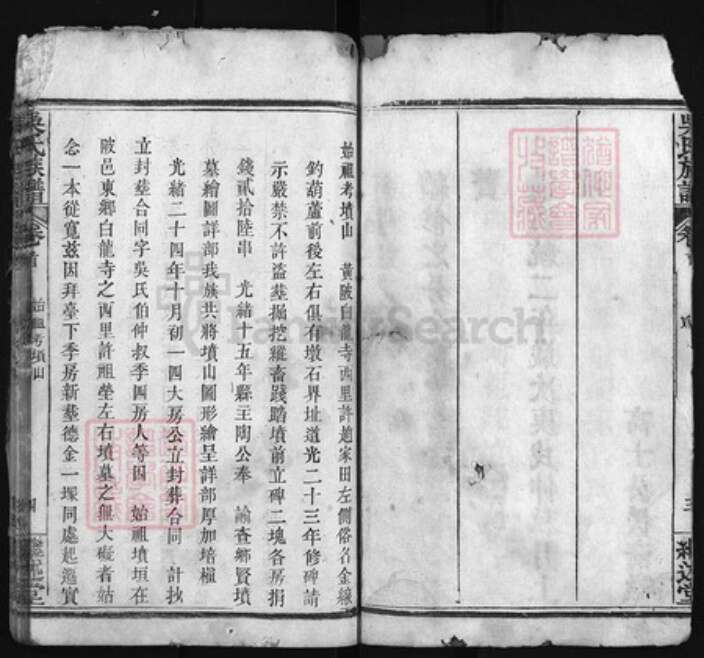 始祖考墳山 黃陂白龍寺西里許趙家田左側俗名金線
釣葫蘆前後左右俱有墩石界址道光二十三年修碑請
示嚴禁不許盜塟掘挖縱畜踐踏墳前立碑二塊各房捐
錢貳拾陸串 光緒十五年縣主陶公奉 諭查鄉賢墳
墓繪圖詳部我族共將墳山圖形繪呈詳部厚加培植
光緒二十四年十月初一四大房公立封塟合同 計抄
立封塟合同字吳氏伯仲叔季四房人等因 始祖墳垣在
陂邑東鄉白龍寺之西里許祖塋左右墳墓之無大礙者姑
念一本從寬茲因拜臺下季房新塟德金一塚同處起遷實
吳氏族譜 卷首 始祖考墳山
吳氏族譜 卷首 三 繼述堂
FamilySearch